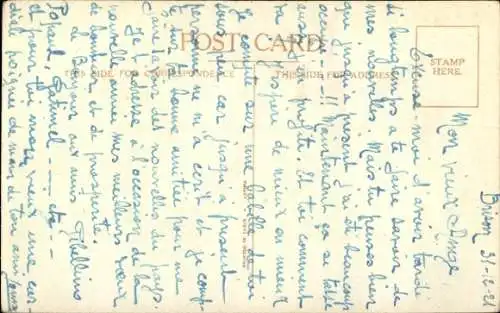 POST CARD
THIS SIDE FOR CORRESPONDENCE
THIS SIDE FOR ADDRESS
STAMP
HERE.
31-12-21
Mon vieux Ange
Excuse-moi d'avoir tardé
si longtemps à te faire savoir de
mes nouvelles. Mais tu penses bien
que jusqu'à présent j'ai été beaucoup
occupé!!! Maintenant ça se tasse
aussi j'en profite. Et toi comment
vas J'espère de mieux en mieux
Je compte sur une babille de toi
car jusqu'à présent
personne ne m'a écrit et je comp-
te sur ta bonne amitié pour me
faire savoir des nouvelles du pays.
Je t'adresse à l'occasion de la
nouvelle année mes meilleurs vœux
de bonheur et de prospérité.
Le Bonjour aux amis
Gatinel -- etc --
et pour toi mon vieux une cor-
diale poignée de main de ton ami